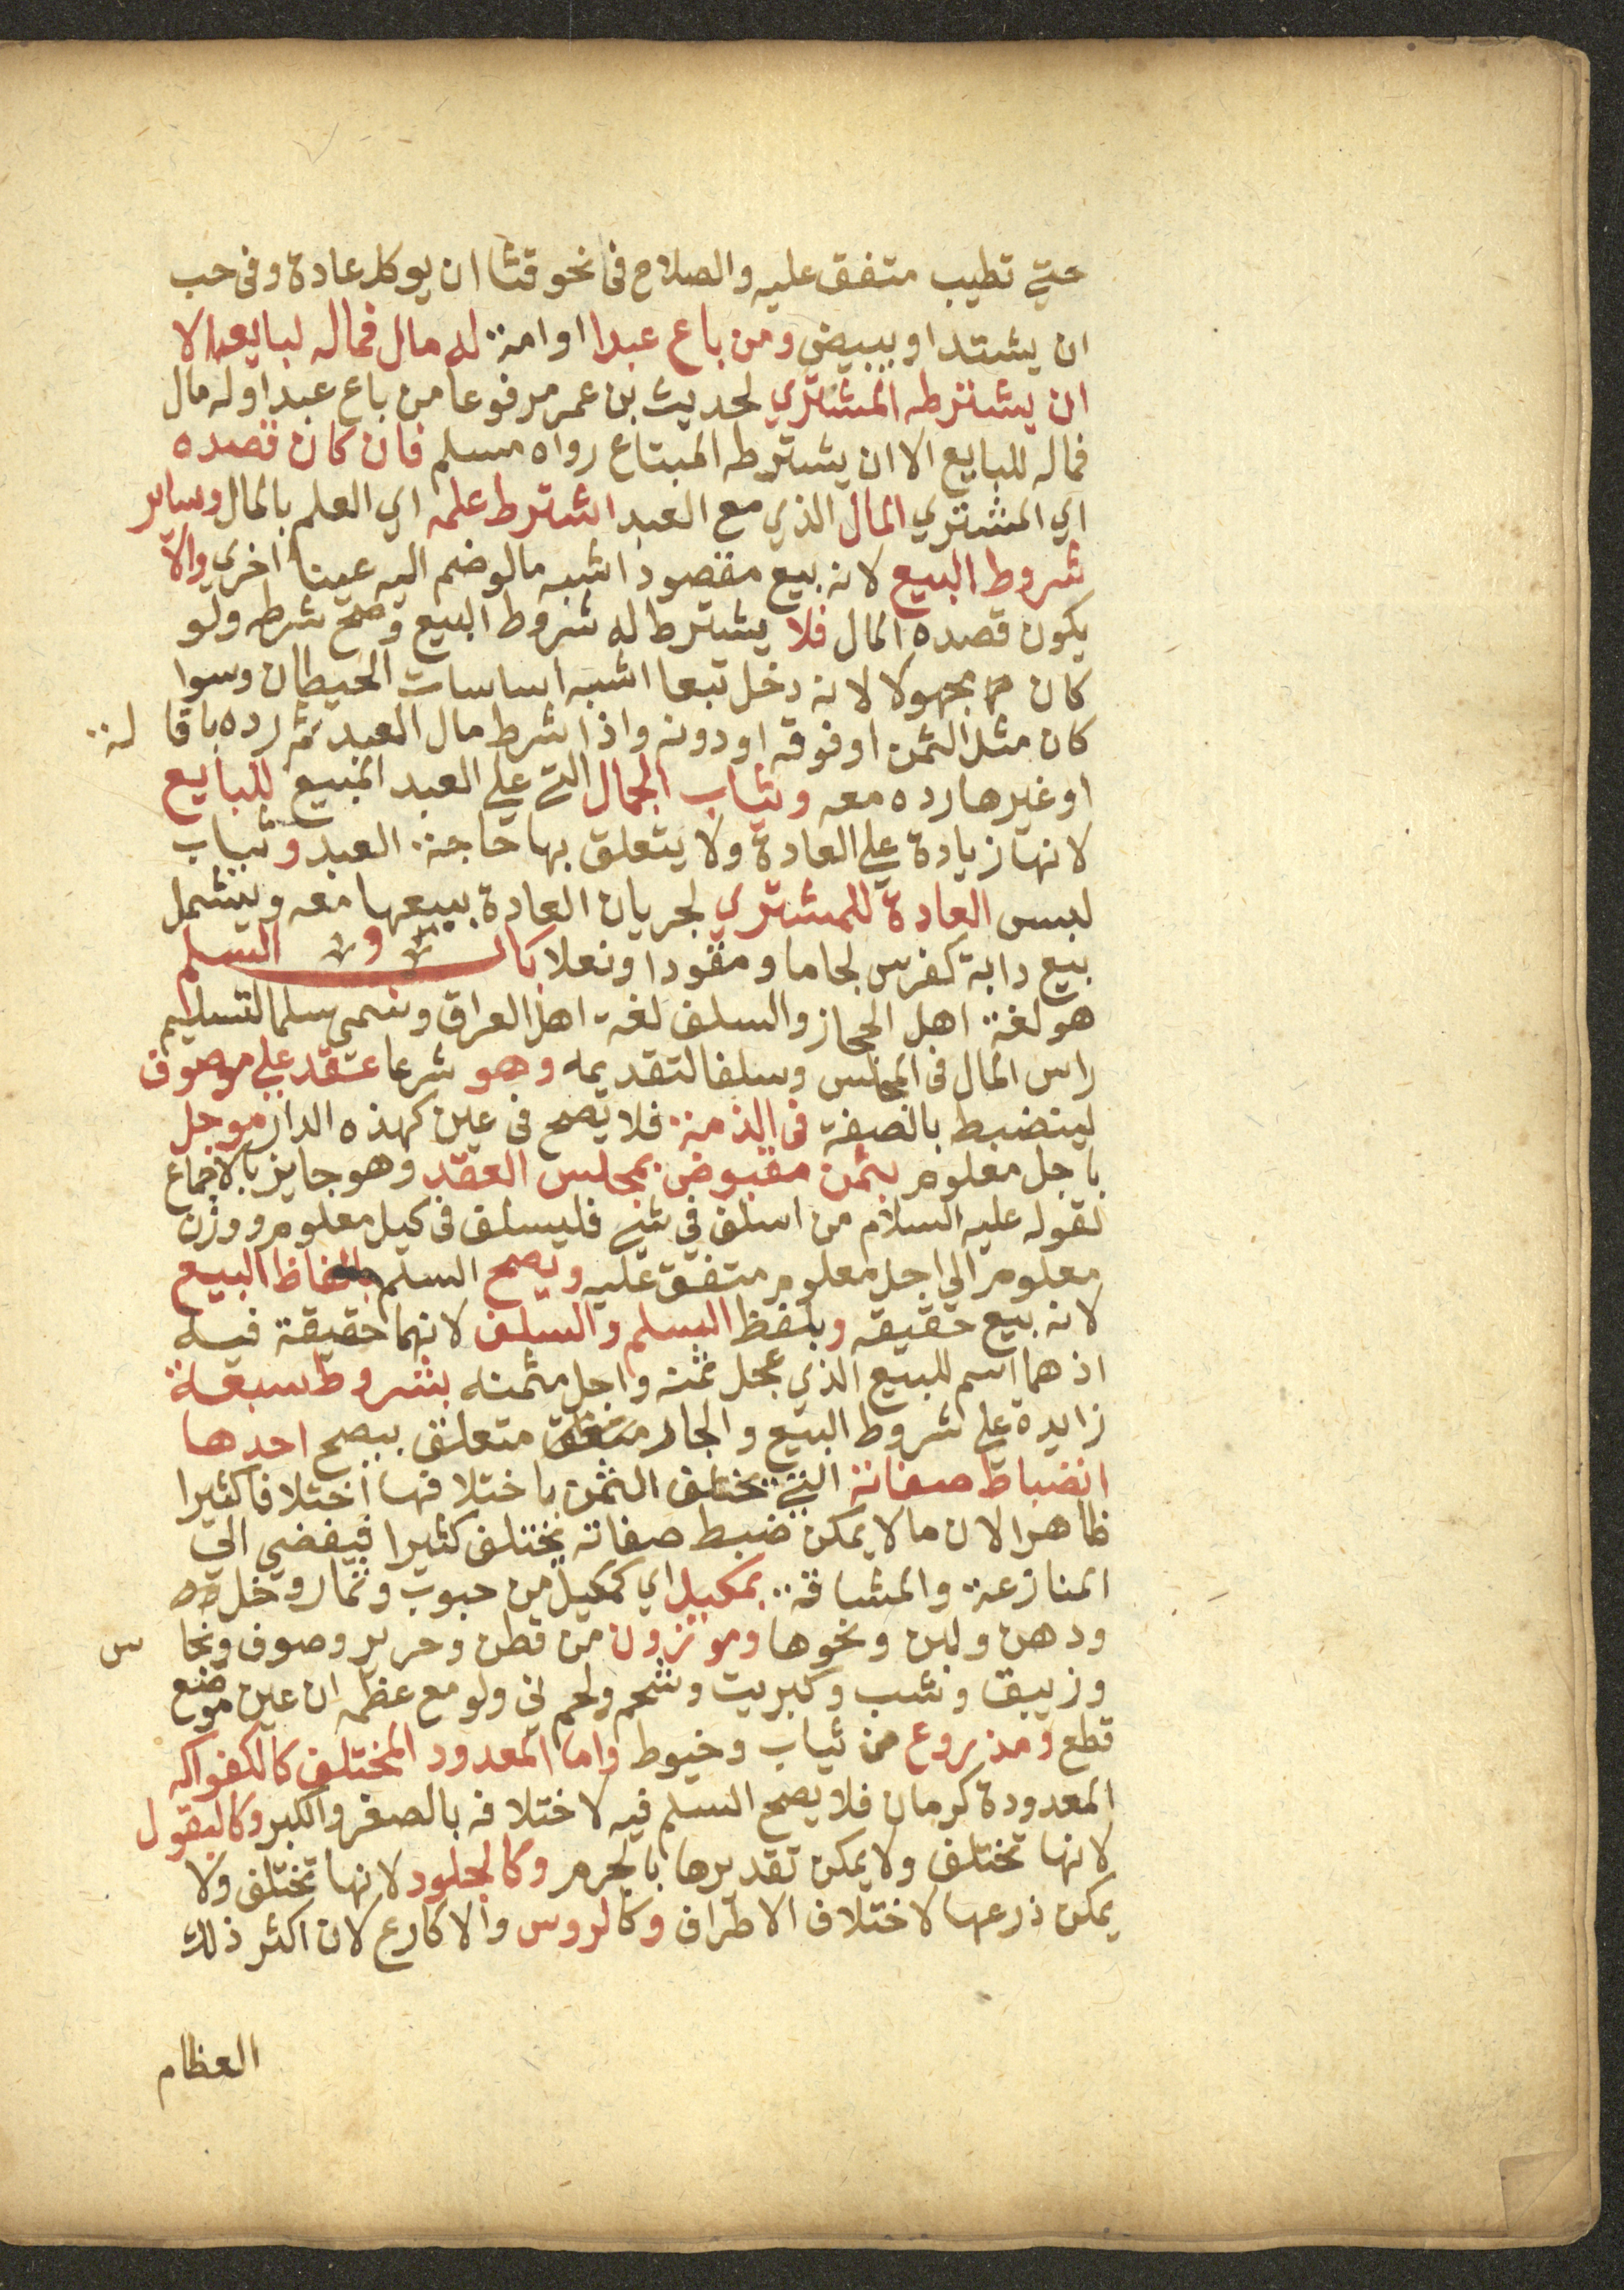 حتي تطيب متفق عليه والصلاح في نحو قثا ان يوكل عادة وفي حب
ان يشتد او يبيض ومن باع عبدا او امة له مال فماله لبايعه الا
ان يشترطه المشتري لحديث بن عمر مرفوعا من باع عبدا وله مال
فماله للبايع الا ان يشترطه المبتاع رواه مسلم فان كان قصده
اي المشتري المال الذي مع العبد اشترط علمه اي العلم بالمال وساير
شروط البيع لانه بيع مقصود اشبه مالو ضم اليه عينا اخري والا
يكون قصده المال فلا يشترط له شروط البيع وصح شرطه ولو
كان مجهولا لانه دخل تبعا اشبه اساسات الحيطان وسوا
كان مثل الثمن او فوقه او دونه واذا شرط مال العبد ثم رده باقالة
او غيرها رده معه وثياب الجمال التي علي العبد المبيع للبايع
لانها زيادة علي العادة ولا يتعلق بها حاجة العبد وثياب
لبس العادة للمشتري لجريان العادة ببيعها معه ويشمل
بيع دابة كفرس لجاما ومقودا ونعلا باب السلم
هو لغة اهل الحجاز والسلف لغة اهل العراق وسمي سلما لتسليم
راس المال في المجلس وسلفا لتقديمه وهو شرعا عقد علي موصوف
لينضبط بالصفة في الذمة فلا يصح في عين كهذه الدار موجل
باجل معلوم بثمن مقبوض بمجلس العقد وهو جايز بالاجماع
لقوله عليه السلام من اسلف في شي فليسلف في كيل معلوم ووزن
معلوم الي اجل معلوم متفق عليه ويصح السلم بالفاظ البيع
لانه بيع حقيقه وبلفظ السلم والسلف لانهما حقيقة فيه
اذ هما اسم للبيع الذي عجل ثمنه واجل مثمنه بشروط سبعة
زايدة علي شروط البيع والجار متعلق متعلق بيصح احدها
انضباط صفاته التي يختلف الثمن باختلافها اختلافا كثيرا
ظاهرا لان ما لا يمكن ضبط صفاته يختلف كثيرا فيفضي الي
المنازعة والمشاقة بمكيل اي كمكيل من حبوب وثمار وخل
ودهن ولبن ونحوها وموزون من قطن وحرير وصوف ونحاس
وزيبق وشب وكبريت وشحم ولحم ني ولو مع عظمه ان عين موضع
قطع ومذروع من ثياب وخيوط واما المعدود المختلف كالفواكه
المعدودة كرمان فلا يصح السلم فيه لاختلافه بالصغر والكبر وكالبقول
لانها تختلف ولا يمكن تقديرها بالجرم وكالجلود لانها تختلف ولا
يمكن ذرعها لاختلاف الاطراف وكالروس والاكارع لان اكثر ذلك
العظام